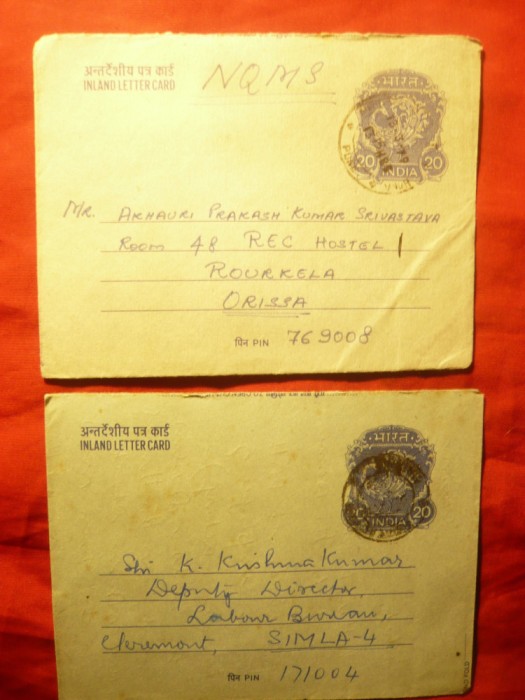 अन्तर्देशीय पत्र कार्ड
INLAND LETTER CARD
NQMS
भारत
20 20
INDIA
MR. AKHAURI PRAKASH KUMAR SRIVASTAVA
ROOM 48 REC HOSTEL 1
ROURKELA
ORISSA
पिन PIN 769008
अन्तर्देशीय पत्र कार्ड
INLAND LETTER CARD
भारत
20
INDIA
Shri K. Krishna Kumar
Deputy Director,
Labour Bureau,
Cleremont, SIMLA-4.
पिन PIN 171004
NO FOLD